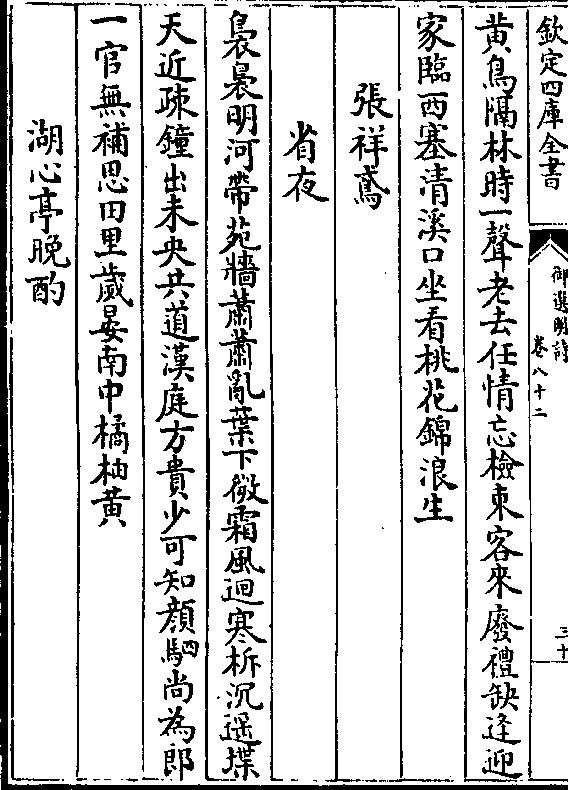 欽定四庫全書
御選明詩
卷八十二
三十
黄鳥隔林時一聲老去任情忘檢束客來廢禮缺逢迎
家臨西塞清溪口坐看桃花錦浪生
張祥鳶
省夜
裊裊明河帶苑牆蕭蕭亂葉下微霜風迴寒柝沉遥堞
天近疎鐘出未央共道漢庭方貴少可知顔駟尚為郎
一官無補思田里歲晏南中橘柚黄
湖心亭晚酌